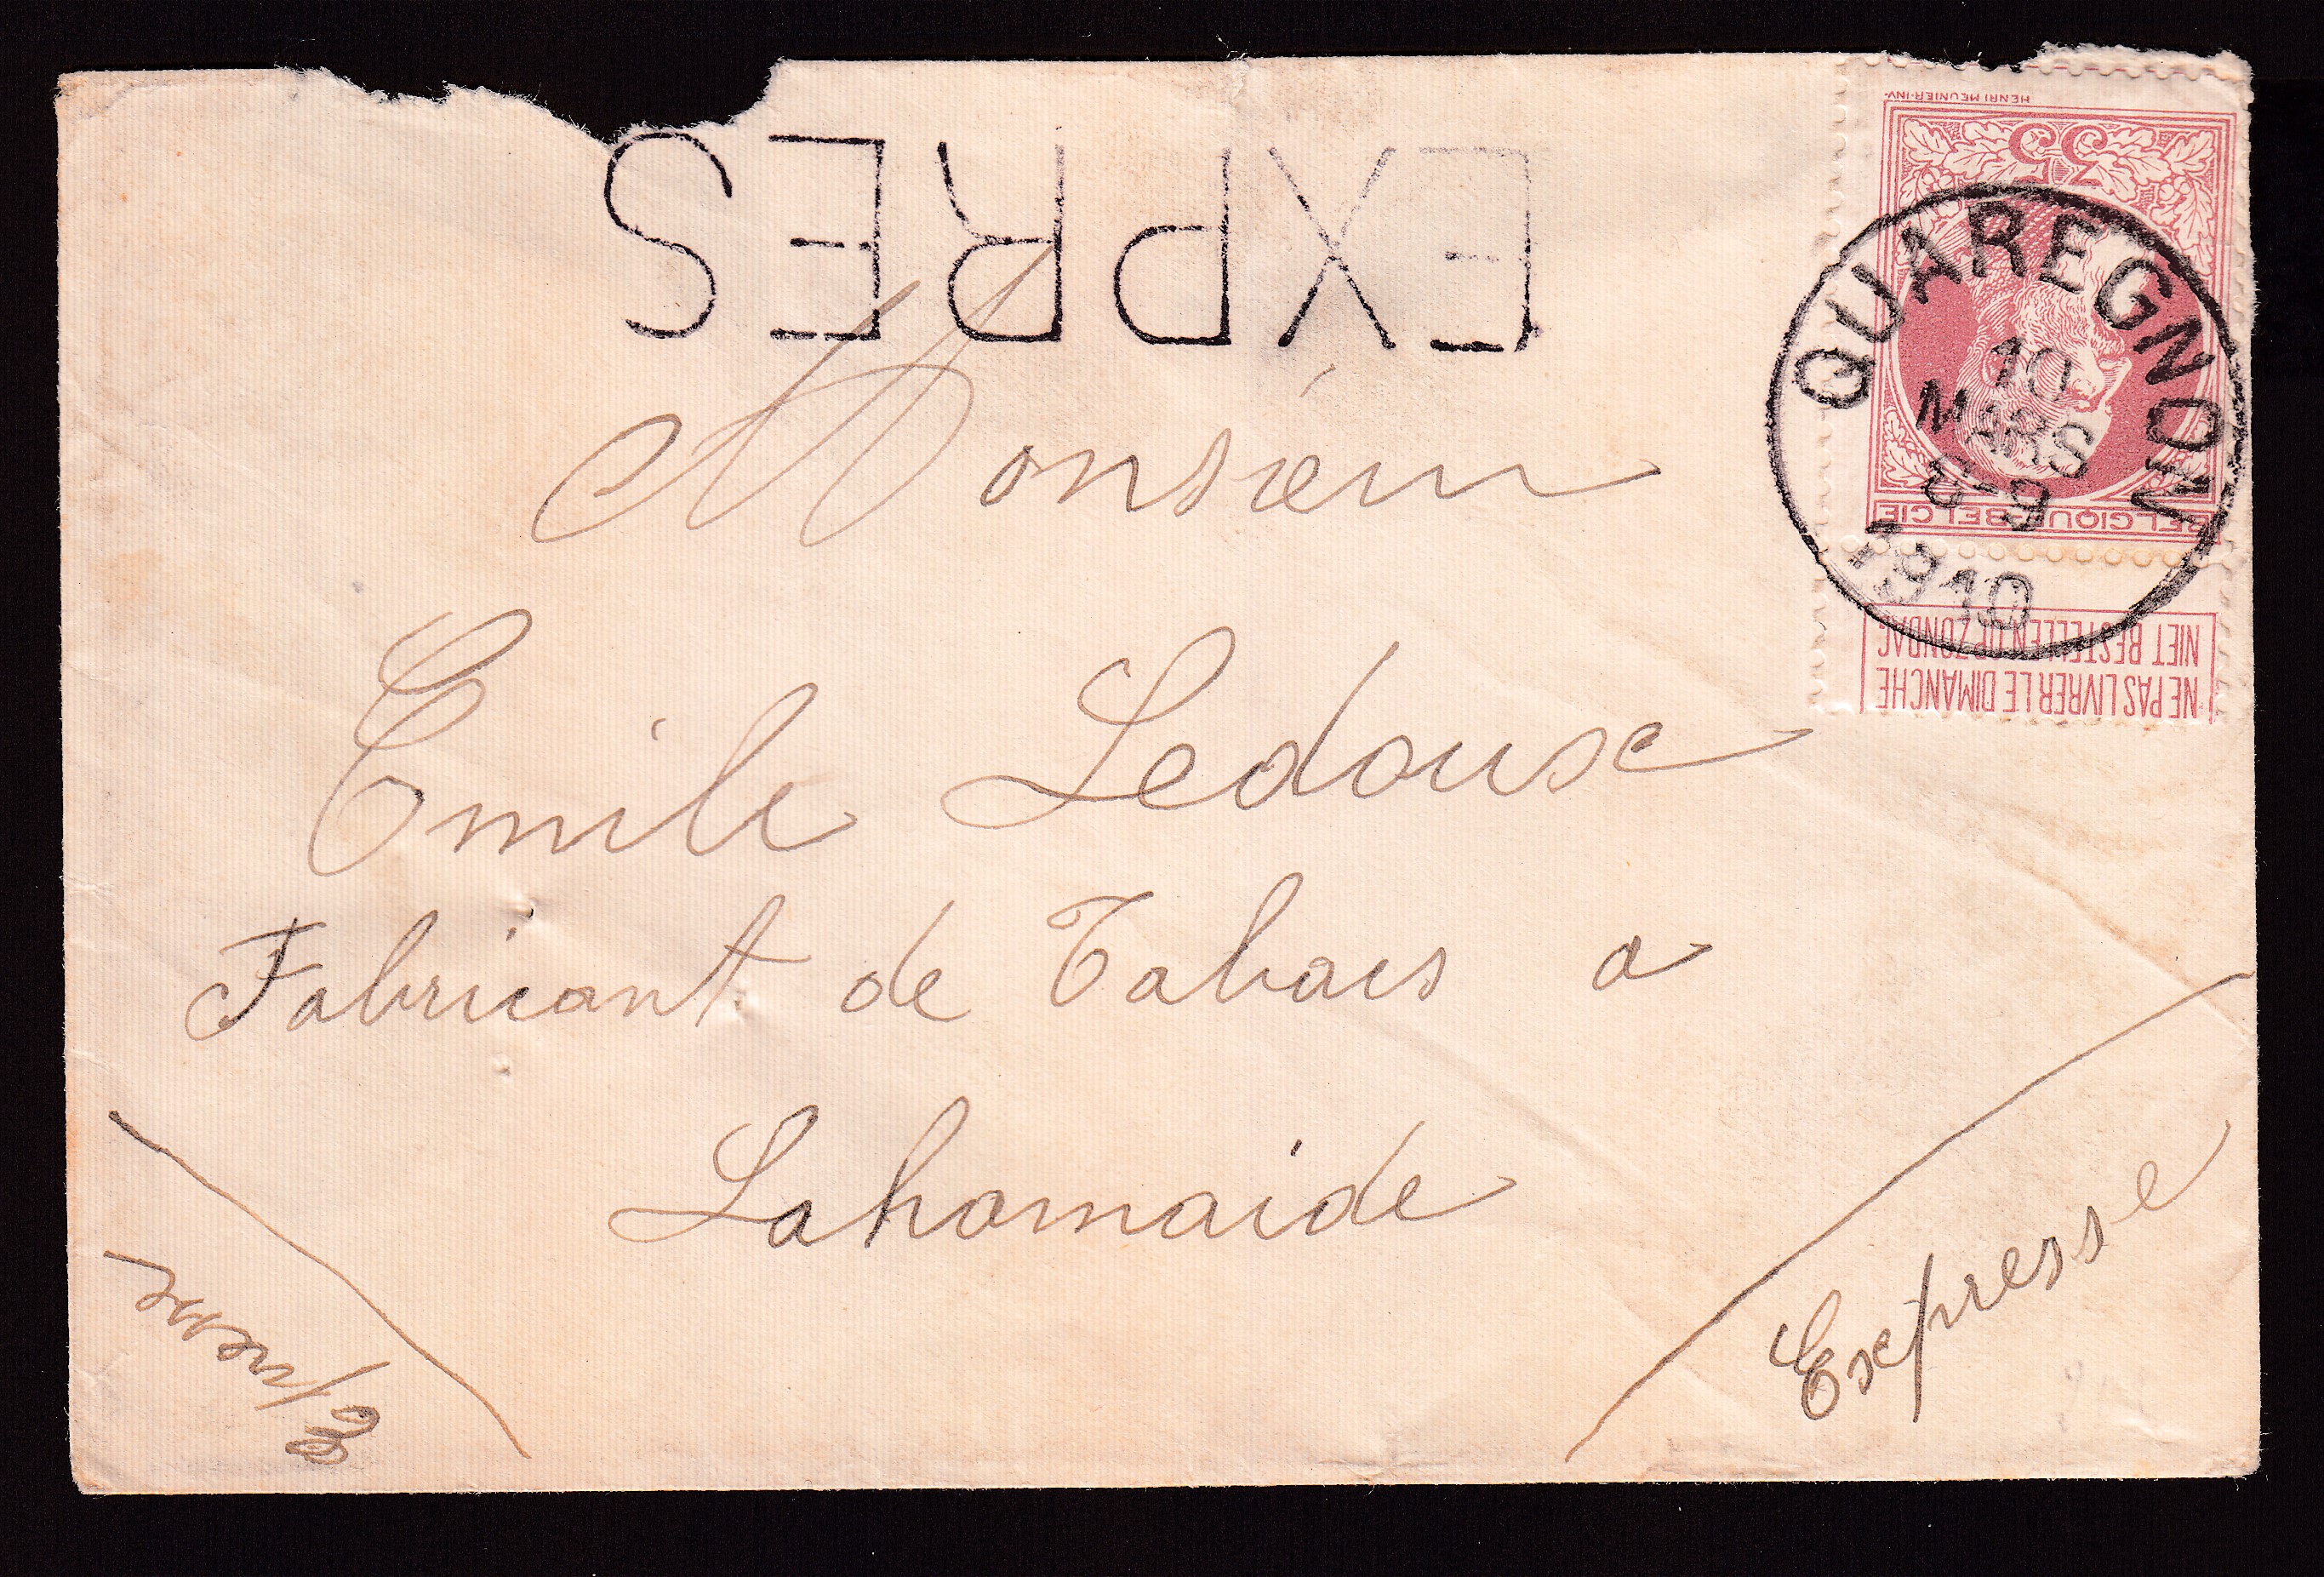 EXPRES
HENRI MEUNIER·INV·
35
BELGIQUE-BELGIË
NE PAS LIVRER LE DIMANCHE
NIET BESTELLEN OP ZONDAG
QUAREGNON
10
MARS
8-9
1910
Monsieur
Emile Ledouse
Fabricant de Tabacs a
Lahamaide
Expresse
Expresse